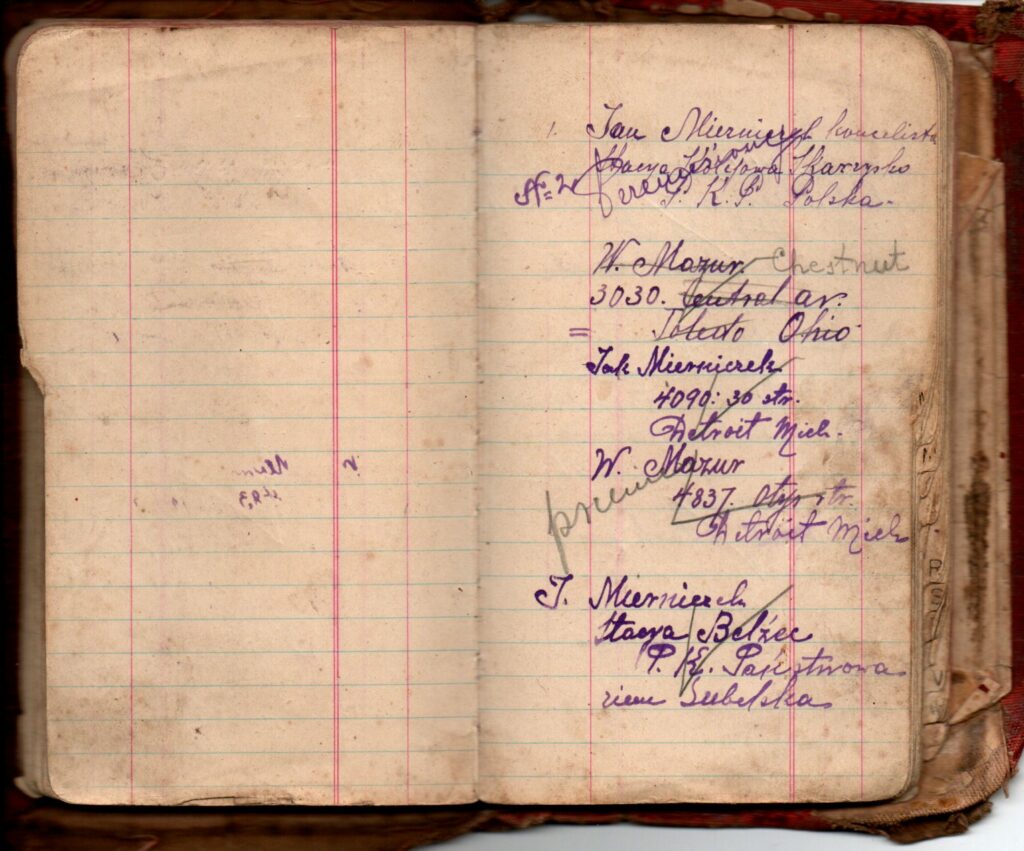 1. Jan Mierniczek kancelista
Stacya Kolejowa Skarzysko
№ 2
P. K. P. Polska.
W. Mazur. Chestnut
3030. Central av.
= Toledo Ohio
Jak Mierniczek
4090: 30 str.
Detroit Mich.
W. Mazur
4837. Otys str.
Detroit Mich
J. Mierniczek
Stacya Bełżec
P. K. Państwowa
ziem Lubelska